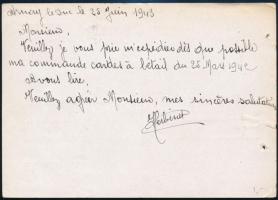 Arnay le Duc le 25 Juin 1943
Monsieur,
Veuillez je vous prie m'expedier dès que possible
ma commande cordes à bétail du 25 Mars 1942
A vous lire,
Veuillez agréer Monsieur, mes sincères salutations